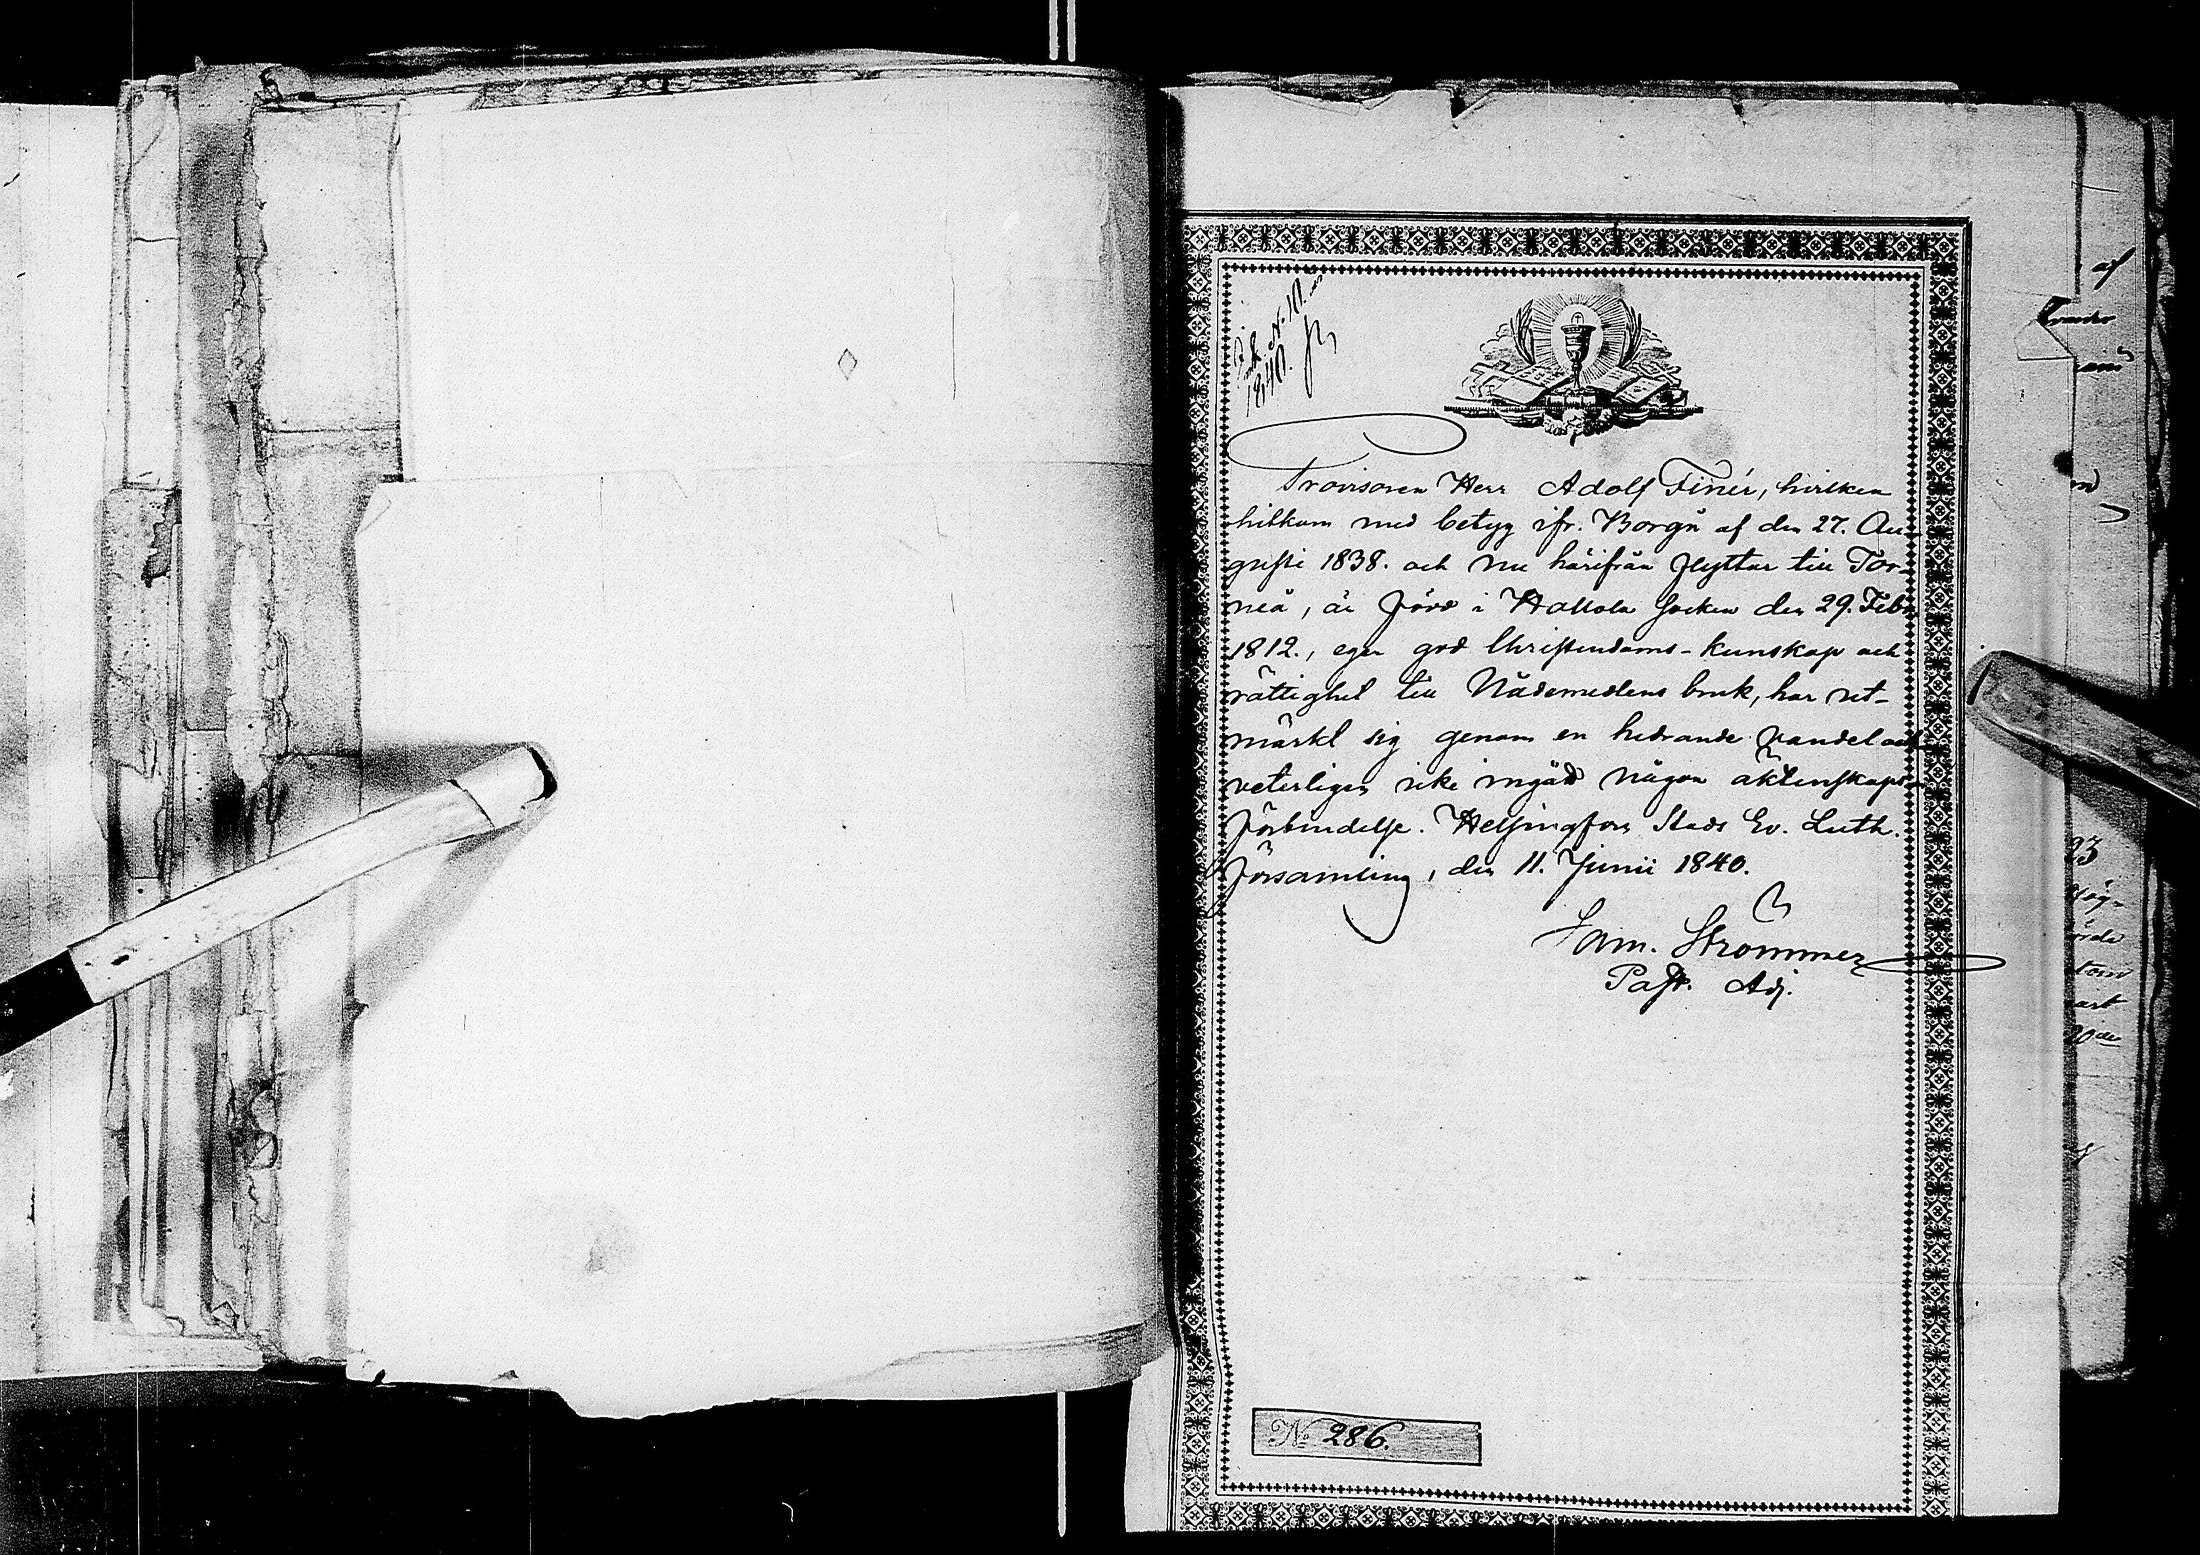 Ink. N. 10.
1840.
Provisoren Herr Adolf Finér, hvilken
hitkom med betyg ifr. Borgå af den 27. Au-
gusti 1838. och nu härifrån flyttar till Tor-
neå, är född i Hollola Socken den 29. Febr
1812., eger god Christendoms-kunskap och
rättighet till Nådemedlens bruk, har ut-
märkt sig genom en hedrande vandel och
veterligen icke ingått någon äktenskaps-
förbindelse. Helsingfors Stads Ev. Luth.
Församling, den 11. Junii 1840.
Sam. Strömmer
Past. Adj.
No 286.
af
23